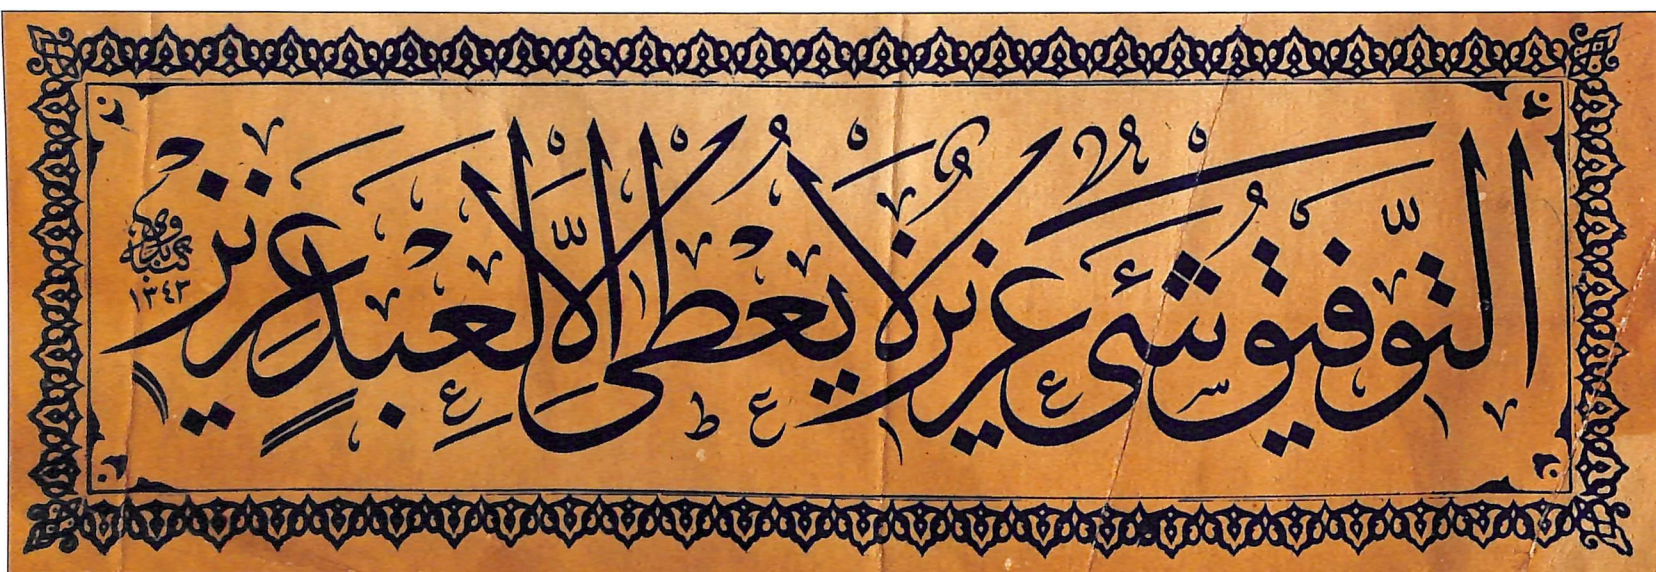 التَّوفيق شئ عزيز لا يعطى الا لعبدٍ عزيزٍ
١٣٤٣